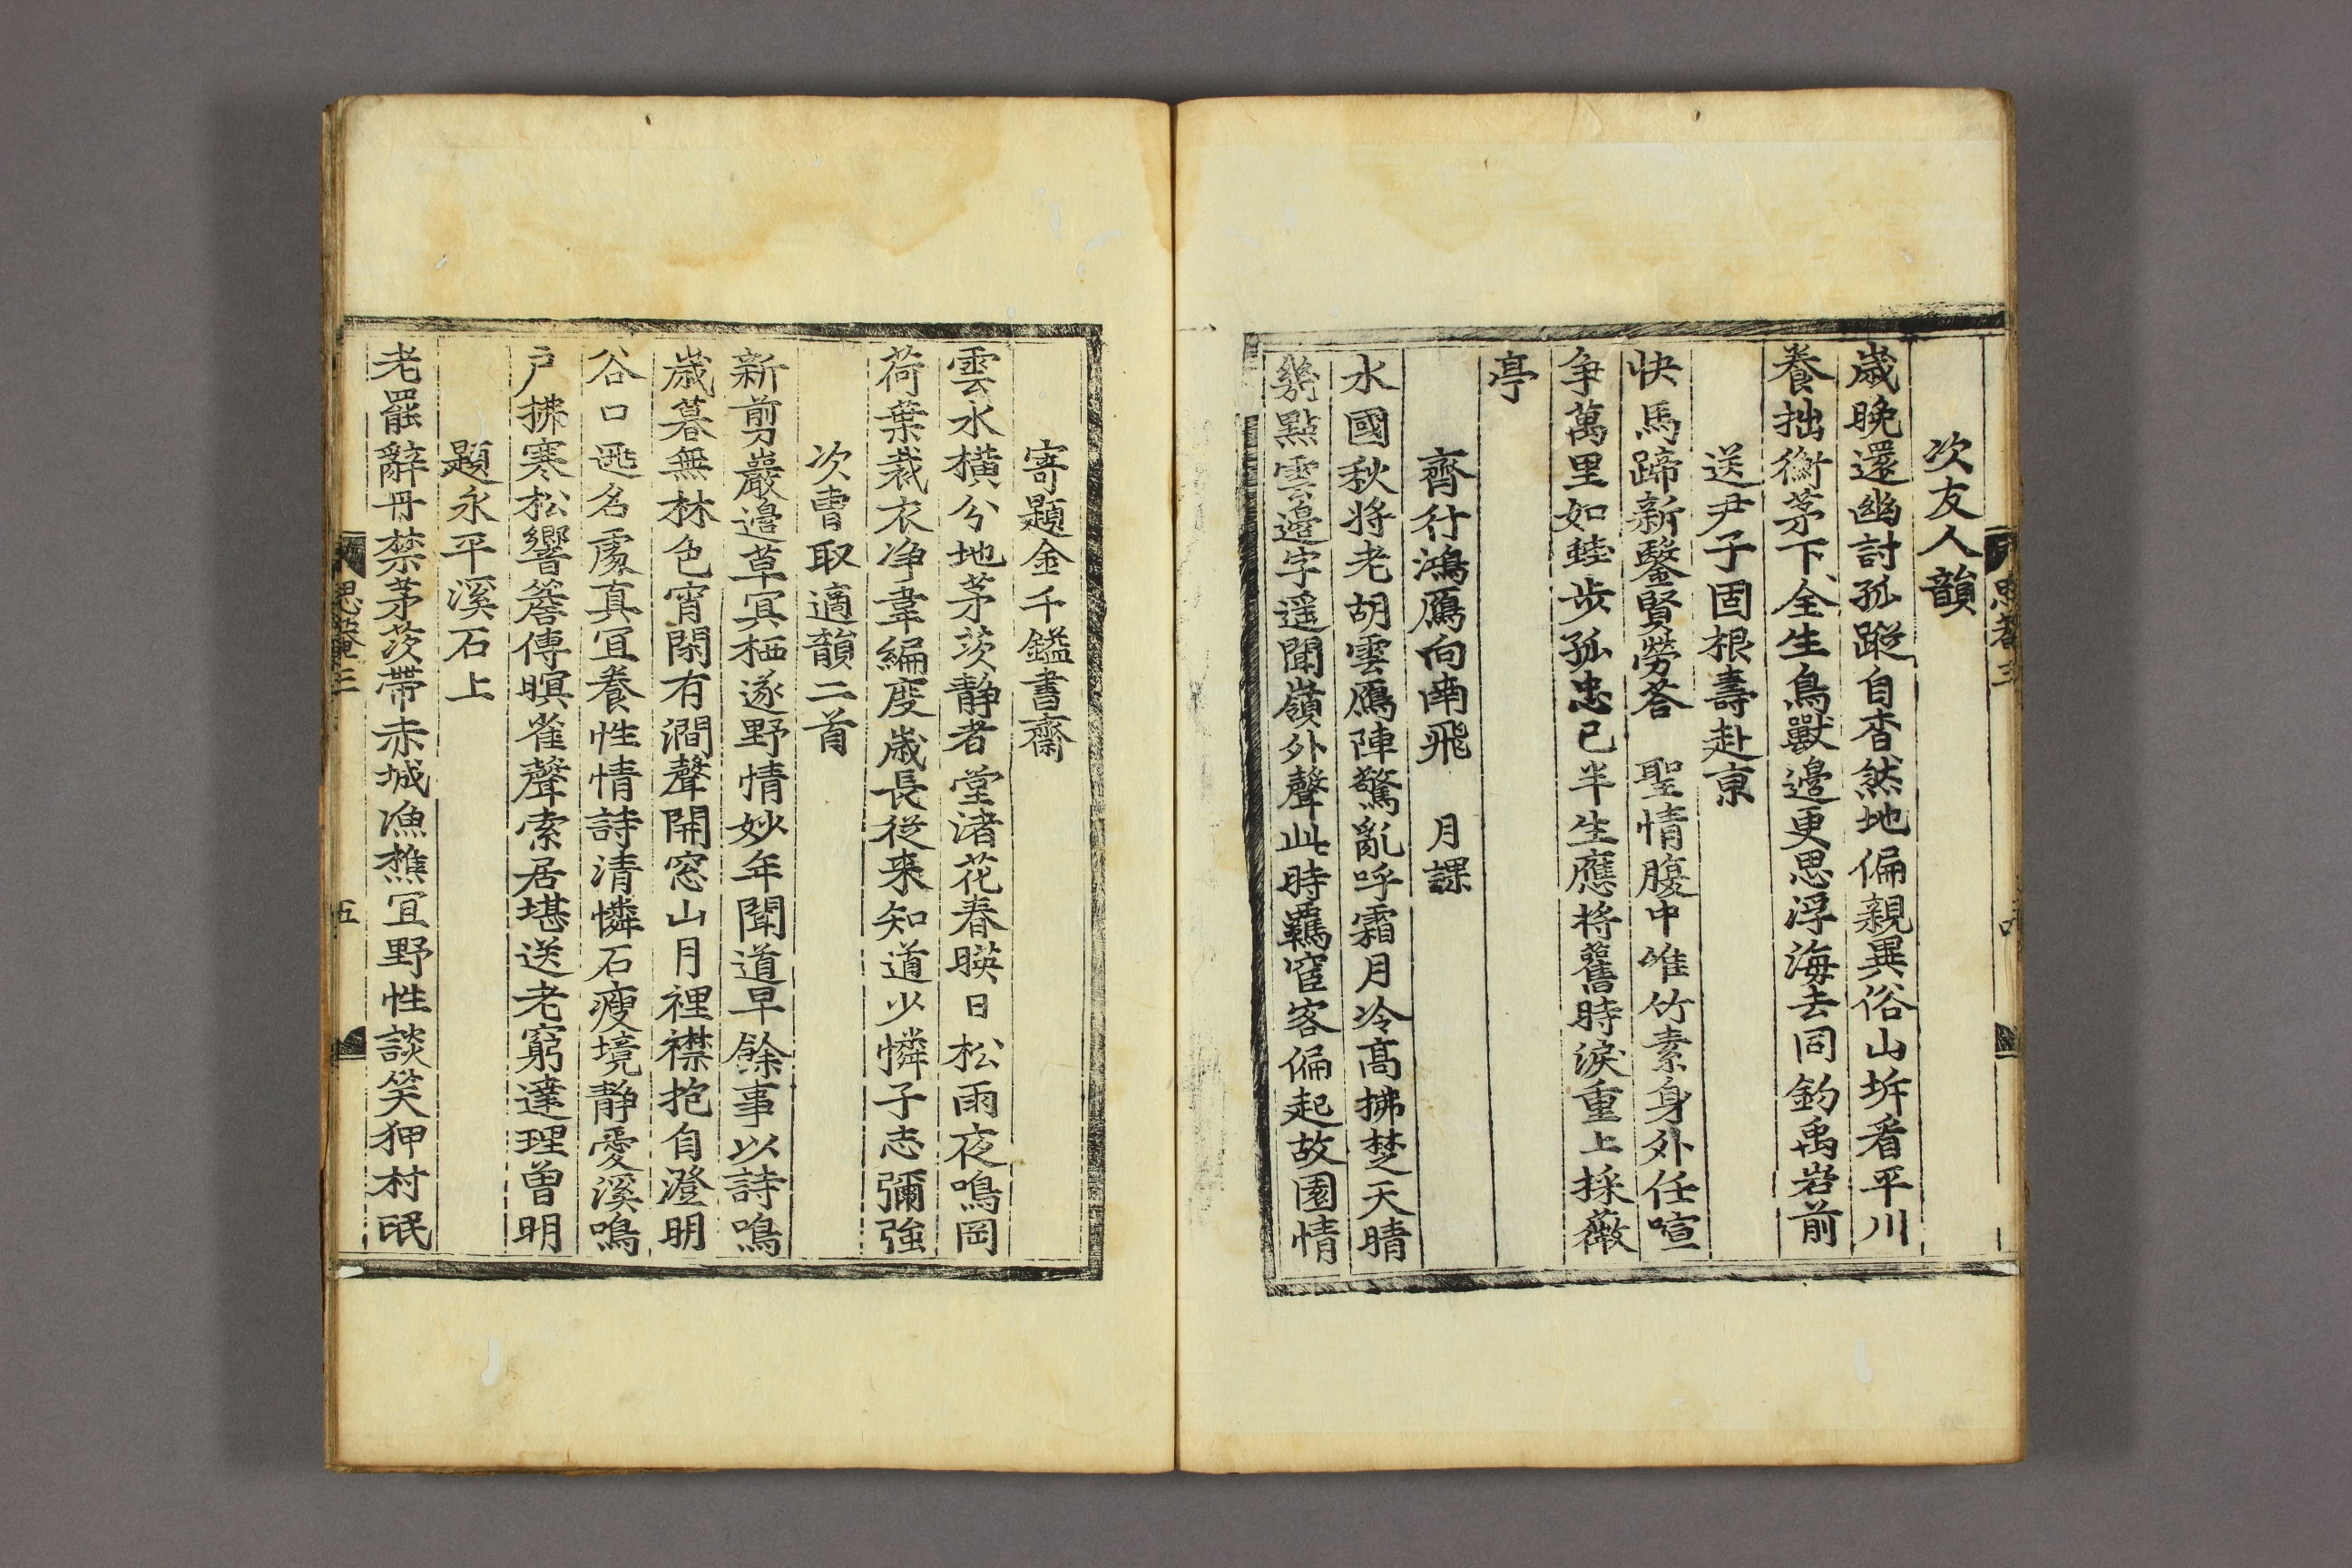 次友人韻
歲晚還幽討孤蹤自杳然地偏親異俗山坼看平川
養拙衡茅下全生鳥獸邊更思浮海去同釣禹岩前
送尹子固根壽赴京
快馬蹄新鑿賢勞荅 聖情腹中唯竹素身外任喧
爭萬里如蛙步孤忠已半生應將舊時淚重上採薇
亭
齊行鴻鴈向南飛 月課
水國秋將老胡雲鴈陣驚亂呼霜月冷高拂楚天晴
幾點雲邊字遥聞嶺外聲此時羈宦客偏起故園情
寄題金千鎰書齋
雲水橫分地茅茨靜者堂渚花春暎日松雨夜鳴岡
荷葉裁衣净韋編度歲長從来知道少憐子志彌強
次曹取適韻二首
新剪巖邊草冥栖遂野情妙年聞道早餘事以詩鳴
歲暮無林色宵閑有澗聲開窓山月裡襟抱自澄明
谷口逃名處真冝養性情詩清憐石瘦境靜愛溪鳴
户拂寒松響簷傳暝雀聲索居堪送老窮達理曽明
題永平溪石上
老罷辭丹禁茅茨帶赤城漁樵冝野性談笑狎村氓
思菴三
五